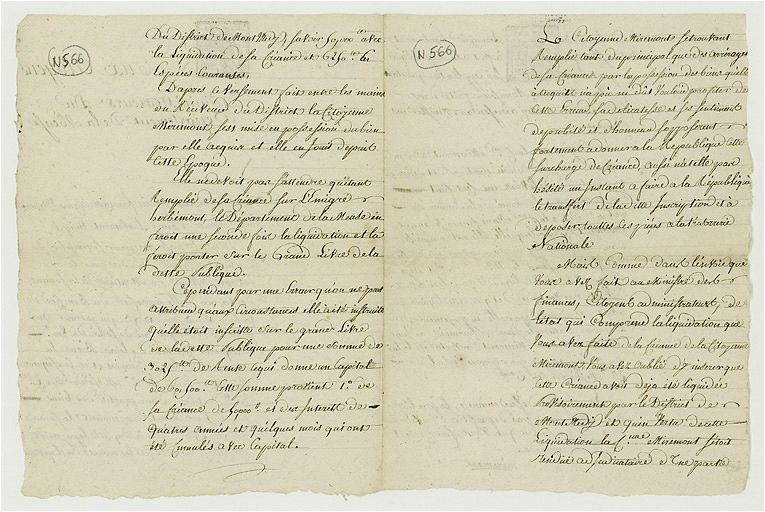 N 566
Du District de Montmedy, savoir 50,000 # avec
la Liquidation de sa Créance et 6250 # en
Espèces Courantes.
D'après ce Versement fait entre les mains
du Receveur du District la Citoyenne
Miremont s'est mise en possession du bien
par elle acquis et elle en jouit depuis
cette Epoque.
Elle ne devoit pas s'attendre qu'étant
Remplie de sa Créance sur l'émigré
herlémont, le Département de la Meuse en
feroit une seconde fois la liquidation et la
feroit porter sur le Grand Livre de la
dette Publique.
Cependant par une Erreur qu'on ne peut
attribuer qu'aux Circonstances elle a été instruite
qu'elle étoit inscrite sur le grand Livre
de la dette Publique pour une somme de
3025 # de Rente ce qui donne un Capital
de 60,500 # Cette somme provient 1.° de
sa Créance de 50000 # et des Interest de
quatres années et quelques mois qui ont
été Cumulés avec Capital.
N 566
La Citoyenne Miremont se trouvant
Remplie tant du principal que des arrérages
de sa Créance par la possession des biens qu'elle
a acquis n'a pas un Vouloir profiter de
cette Erreur sa délicatesse et ses sentimens
de probité et d'honneur s'opposerent
fortement à donner à la République cette
surcharge de Créance, aussi n'a t'elle pas
hésité un Instant a faire a la République
le transfert de la dette Inscription et à
déposer toutes les pièces a la trésorerie
Nationale
Mais, comme dans l'envoie que
Vous avez fait au Ministre des
finances, Citoyens administrateurs, de
l'état qui Comprend la liquidation que
Vous avez faite de la Créance de la Citoyenne
Miremont, Vous avez oublié d'y inserer que
cette Créance avoit déja été liquidée
Provisoirement par le District de
Montmedy et qu'en Vertu de cette
Liquidation la C.enne Miremont s'étoit
rendue adjudicataire d'une partie